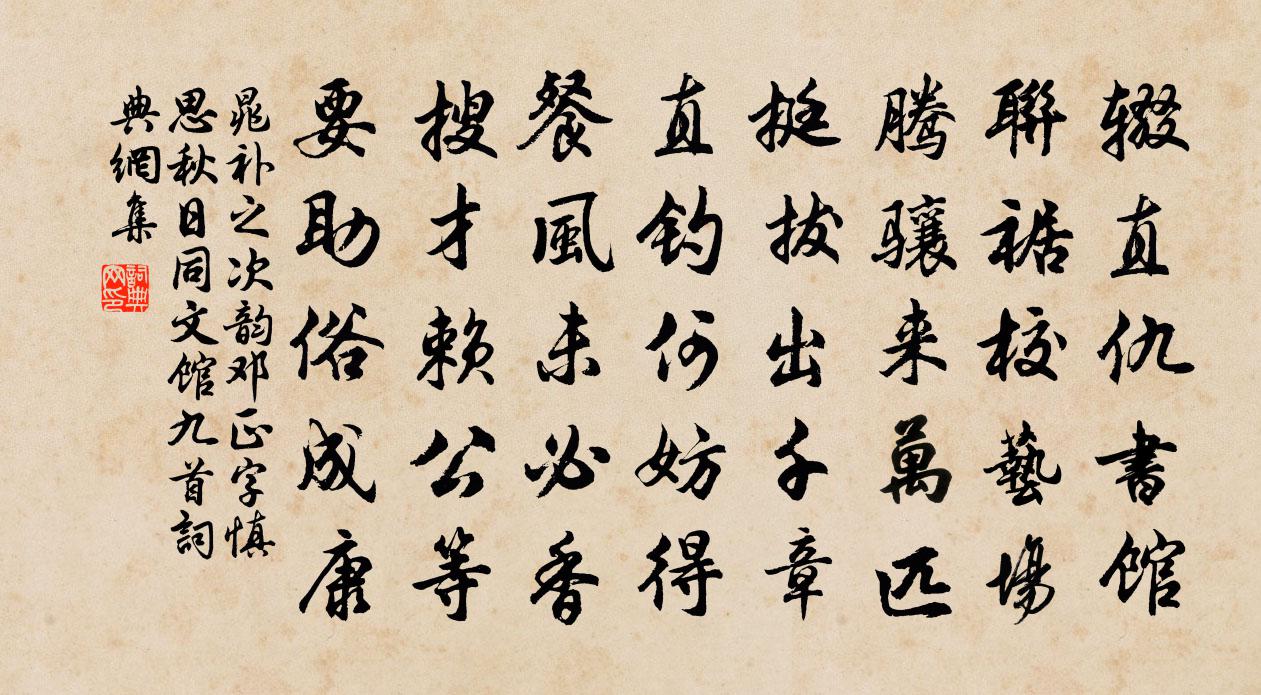 辍直仇书馆
联裾校艺场
腾骧来万匹
挺拔出千章
直钓何妨得
餐风未必香
搜才赖公等
要助俗成康
晁补之次韵邓正字慎
思秋日同文馆九首词
典网集
词典网印